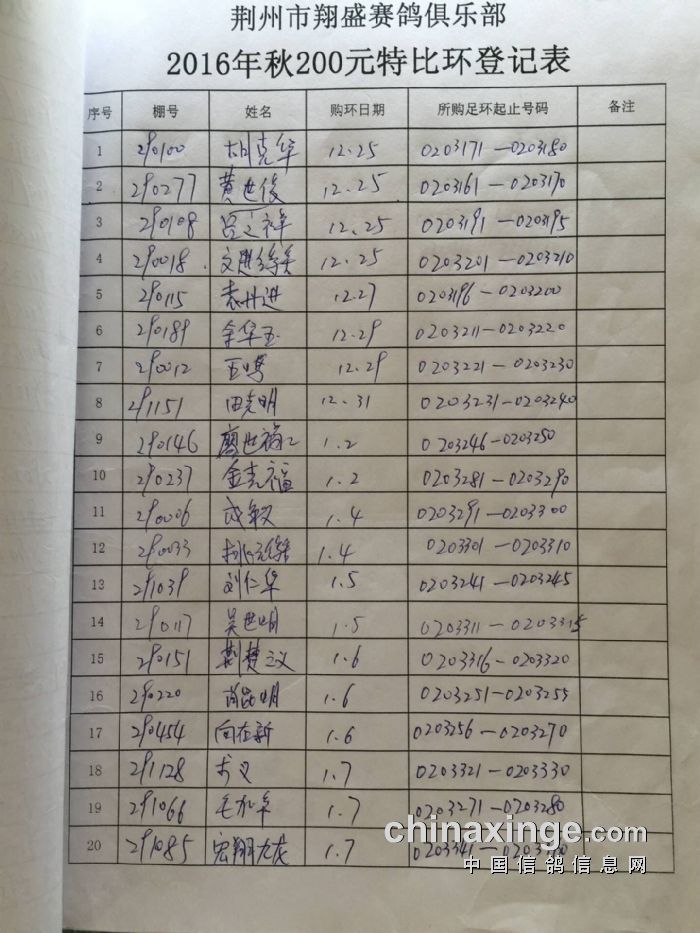 荆州市翔盛赛鸽俱乐部
2016年秋200元特比环登记表
序号 棚号 姓名 购环日期 所购足环起止号码 备注
1 290100 胡克华 12.25 0203171—0203180
2 290277 黄世俊 12.25 0203161—0203170
3 290108 12.25 0203191—0203195
4 290018 12.25 0203201—0203210
5 290115 袁丹进 12.27 0203196—0203200
6 290189 余华玉 12.29 0203211—0203220
7 290012 12.29 0203221—0203230
8 291151 田克明 12.31 0203231—0203240
9 290146 廖世福 1.2 0203246—0203250
10 290237 金克福 1.2 0203281—0203290
11 290006 成敏 1.4 0203291—0203300
12 290033 1.4 0203301—0203310
13 291039 刘仁华 1.5 0203241—0203245
14 290117 吴世明 1.5 0203311—0203315
15 290151 荆楚之义 1.6 0203316—0203320
16 290220 肖昆明 1.6 0203251—0203255
17 290454 向在新 1.6 0203256—0203270
18 291128 1.7 0203321—0203330
19 291066 毛加华 1.7 0203271—0203280
20 291085 宏翔九龙 1.7
chinaxinge.com
中国信鸽信息网